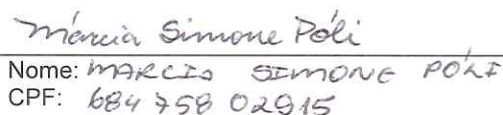 Márcia Simone Póli
Nome: MARCIA SIMONE POLI
CPF: 684 758 02915